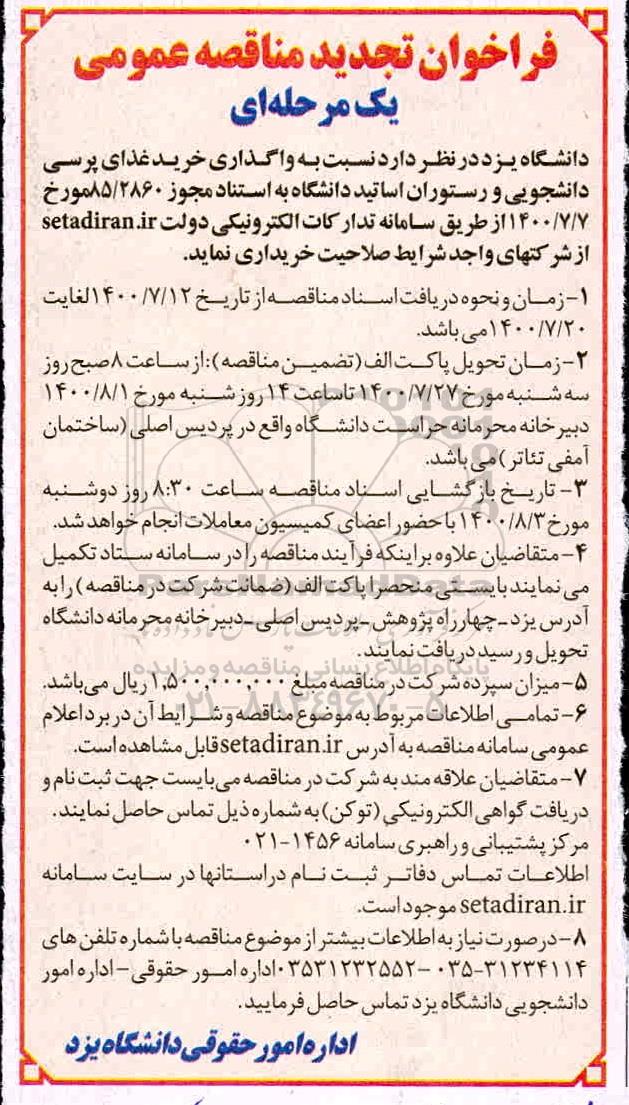 فراخوان تجدید مناقصه عمومی
یک مرحله‌ای
دانشگاه یزد در نظر دارد نسبت به واگذاری خرید غذای پرسی
دانشجویی و رستوران اساتید دانشگاه به استناد مجوز ۸۵/۲۸۶۰مورخ
۱۴۰۰/۷/۷ از طریق سامانه تدارکات الکترونیکی دولت setadiran.ir
از شرکتهای واجد شرایط صلاحیت خریداری نماید.
۱- زمان و نحوه دریافت اسناد مناقصه از تاریخ ۱۴۰۰/۷/۱۲ لغایت
۱۴۰۰/۷/۲۰ می باشد.
۲- زمان تحویل پاکت الف (تضمین مناقصه): از ساعت ۸ صبح روز
سه شنبه مورخ ۱۴۰۰/۷/۲۷ تا ساعت ۱۴ روز شنبه مورخ ۱۴۰۰/۸/۱
دبیرخانه محرمانه حراست دانشگاه واقع در پردیس اصلی (ساختمان
آمفی تئاتر) می باشد.
۳- تاریخ بازگشایی اسناد مناقصه ساعت ۸:۳۰ روز دوشنبه
مورخ ۱۴۰۰/۸/۳ با حضور اعضای کمیسیون معاملات انجام خواهد شد.
۴- متقاضیان علاوه بر اینکه فرآیند مناقصه را در سامانه ستاد تکمیل
می نمایند بایستی منحصرا پاکت الف (ضمانت شرکت در مناقصه) را به
آدرس یزد ـ چهارراه پژوهش ـ پردیس اصلی ـ دبیرخانه محرمانه دانشگاه
تحویل و رسید دریافت نمایند.
پایگاه اطلاع رسانی مناقصه و مزایده
۵- میزان سپرده شرکت در مناقصه مبلغ ۱,۵۰۰,۰۰۰,۰۰۰ ریال می‌باشد.
۰۲۱-۸۸۳۴۹۶۷۰-۵
۶- تمامی اطلاعات مربوط به موضوع مناقصه و شرایط آن در برد اعلام
عمومی سامانه مناقصه به آدرس setadiran.ir قابل مشاهده است.
۷- متقاضیان علاقه مند به شرکت در مناقصه می‌بایست جهت ثبت نام و
دریافت گواهی الکترونیکی (توکن) به شماره ذیل تماس حاصل نمایند.
مرکز پشتیبانی و راهبری سامانه ۱۴۵۶-۰۲۱
اطلاعات تماس دفاتر ثبت نام در استانها در سایت سامانه
setadiran.ir موجود است.
۸- در صورت نیاز به اطلاعات بیشتر از موضوع مناقصه با شماره تلفن های
۰۳۵-۳۱۲۳۴۱۱۴ - ۰۳۵۳۱۲۳۲۵۵۲ اداره امور حقوقی - اداره امور
دانشجویی دانشگاه یزد تماس حاصل فرمایید.
اداره امور حقوقی دانشگاه یزد